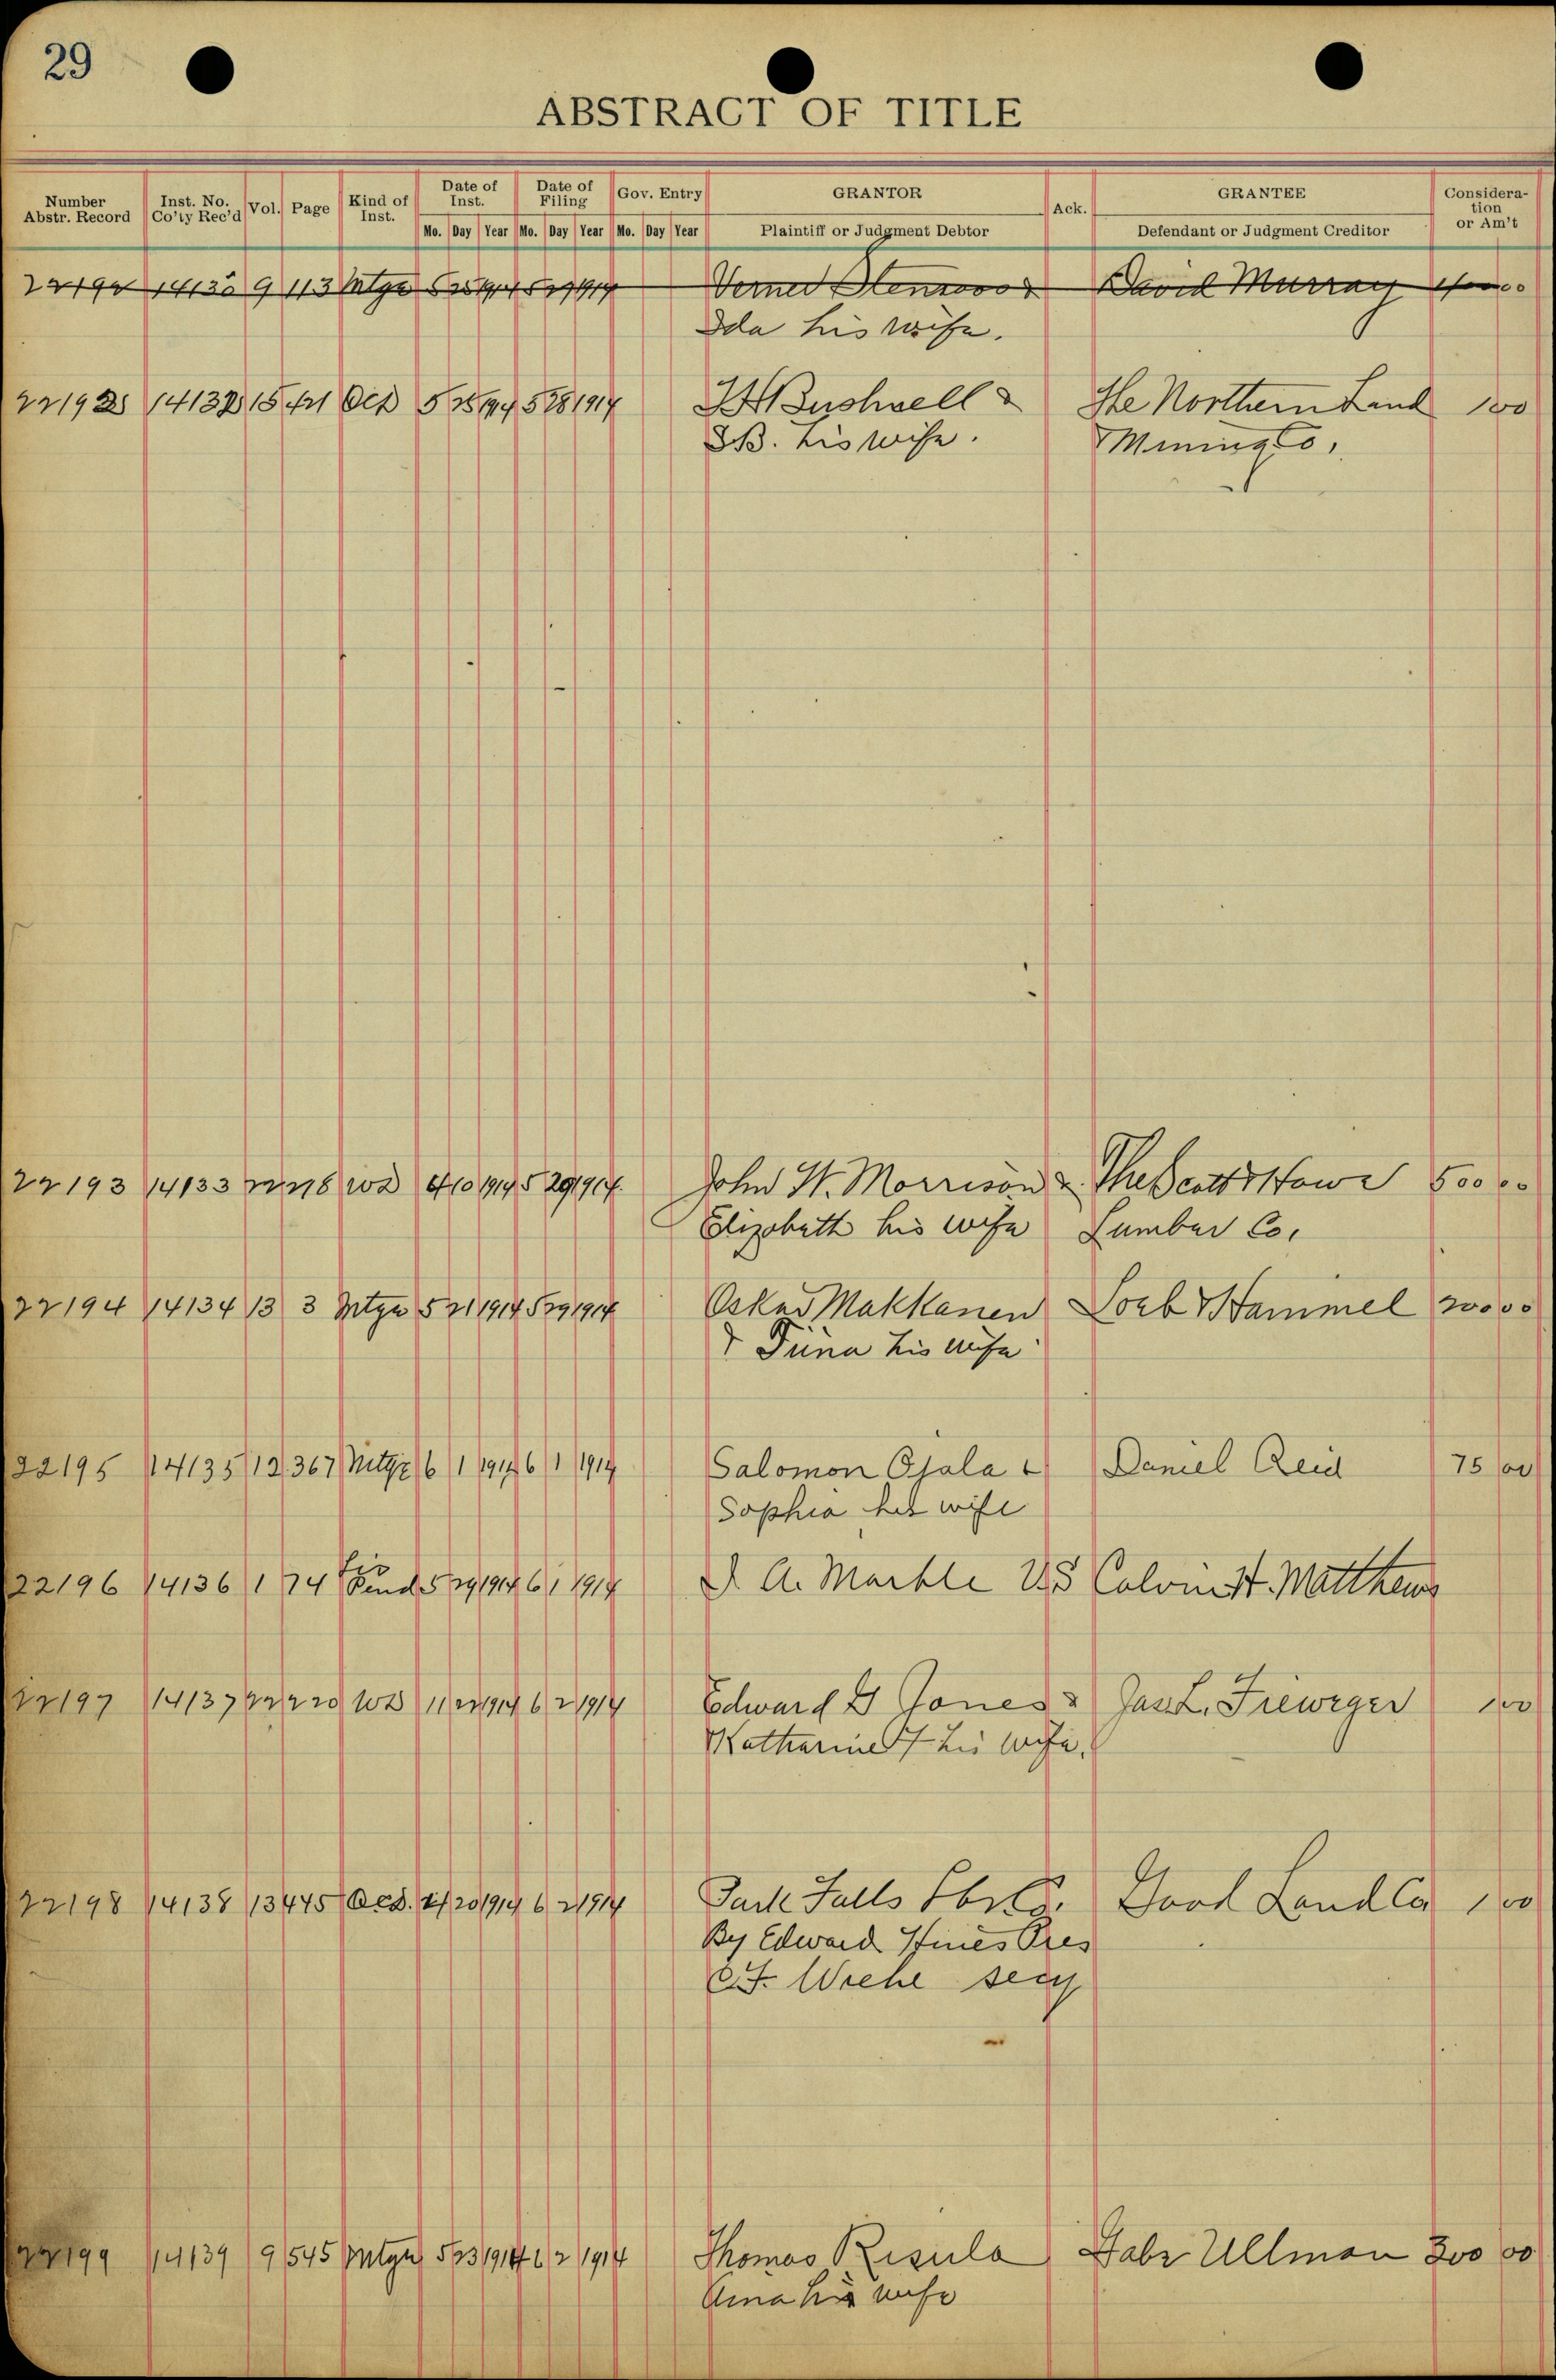 29
ABSTRACT OF TITLE
Number Abstr. Record Inst. No. Co'ty Rec'd Vol. Page Kind of Inst. Date of Inst. Date of Filing Gov. Entry GRANTOR Ack. GRANTEE Consideration or Am't
Mo. Day Year Mo. Day Year Mo. Day Year Plaintiff or Judgment Debtor Defendant or Judgment Creditor
9 113 Mtge David Murray
Ida his wife.
15 421 5 28 1914 Bushnell & The Northern Land 100
his wife. Mining Co.
22193 14133 WD 4 10 1914 5 29 1914 John W. Morrison & The Scott & Howe 500 00
Elizabeth his wife Lumber Co.
22194 14134 13 3 Mtge 5 21 1914 5 29 1914 Oskar Makkanen Loeb & Hammel 200 00
& Tiina his wife
22195 14135 12 367 Mtge 6 1 1914 6 1 1914 Salomon Ojala & Daniel Reid 75 00
Sophia his wife
22196 14136 1 74 Lis Pend 5 29 1914 6 1 1914 A. Markle VS Matthews
22197 14137 22 220 WD 11 22 6 2 1914 Edward Jones & Jas. L. 1 00
Katharine his wife.
22198 14138 13 445 Ded. 4 20 1914 6 2 1914 Park Falls Lbr Co. Good Land Co 1 00
By Edward Hines Pres
Wiehe secy
22199 14139 9 545 Mtge 5 23 1914 6 2 1914 Thomas Risula Gabe Ullman 300 00
Aina his wife